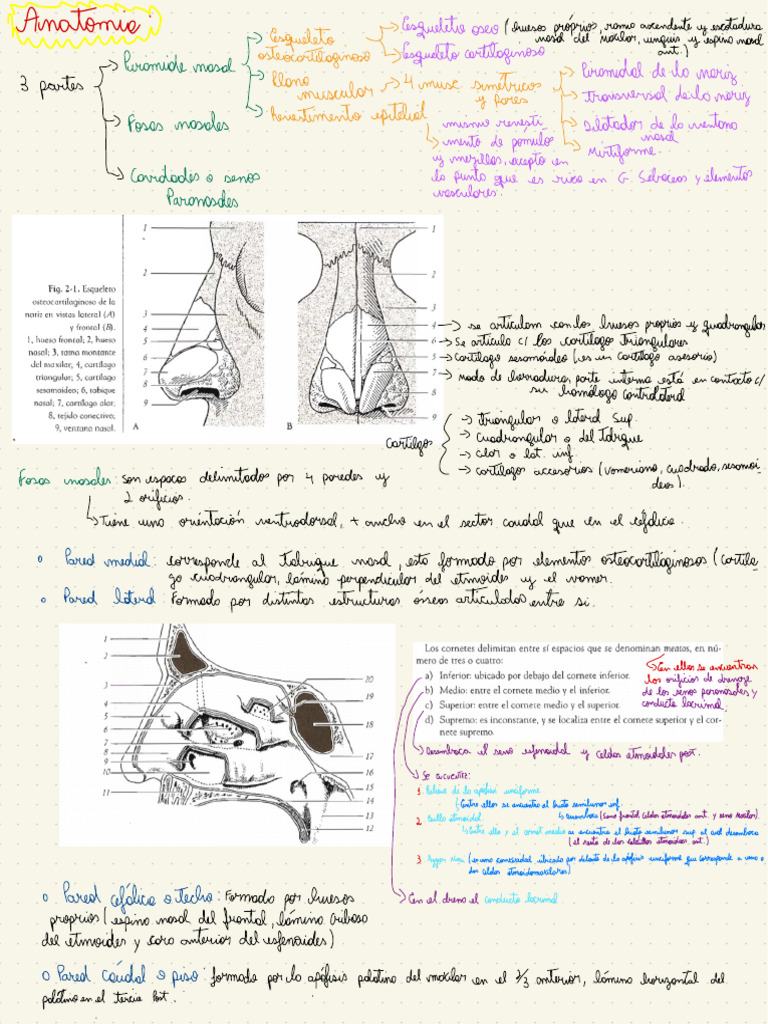 Anatomia:
3 partes
Piramide nasal
Fosas nasales
Cavidades o senos
Paranasales
Esqueleto
osteocartilaginoso
Llano
muscular
Revestimiento epitelial
Esqueleto oseo (huesos próprios, ramo ascendente y escotadura
nasal del maxilar, unguis y espina nasal
ant.)
Esqueleto cartilaginoso
4 musc simétricos
y pares
Piramidal de la nariz
Transversal de la nariz
Dilatador de la ventana
nasal
Mirtiforme.
mismo revesti
mento de pómulo
y mejillas, acepto en
la punta que es rica en G. Sebaceos y elementos
vasculares.
Fig. 2-1. Esqueleto
osteocartilaginoso de la
nariz en vistas lateral (A)
y frontal (B).
1, hueso frontal; 2, hueso
nasal; 3, rama montante
del maxilar; 4, cartílago
triangular; 5, cartílago
sesamoideo; 6, tabique
nasal; 7, cartílago alar;
8, tejido conectivo;
9, ventana nasal.
1
2
3
4
5
6
7
8
9
A
1
2
3
4
6
5
7
8
9
B
se articulam con los huesos proprios y quadrangular
Se articula c/ los cartílago triangulares
Cartílago sesamoídeo (es un cartílago asesorio)
Modo de herradura, parte interna está en contacto c/
su homólogo contralateral
Cartílagos
Triangular o lateral Sup
Cuadrangular o del tabique
alar o lat. inf.
cartílagos accesorios (vomeriano, cuadrado, sesamoi
deos).
Fosas nasales: son espacos delimitados por 4 paredes y
2 orificios.
Tiene una orientación ventrodorsal, + ancho en el sector caudal que en el cefálico
o Pared medial: corresponde al tabique nasal, esta formado por elementos osteocartilaginosos (cartíla
go cuadrangular, lámina perpendicular del etmoides y el vomer.
o Pared lateral: Formado por distintas estructuras óseas articuladas entre si.
1
2
3
4
5
6
7
8
9
10
11
20
19
18
17
16
15
14
13
12
Los cornetes delimitan entre sí espacios que se denominan meatos, en nú-
mero de tres o cuatro:
a) Inferior: ubicado por debajo del cornete inferior.
b) Medio: entre el cornete medio y el inferior.
c) Superior: entre el cornete medio y el superior.
d) Supremo: es inconstante, y se localiza entre el cornete superior y el cor-
nete supremo.
En ellos se encuentran
los orificios de drenaje
de los senos paranasales y
conducto lacrimal.
Desemboca el seno esfenoidal y celdas etmoidales post.
Se encuentra:
1. Relieve de la apófisi unciforme
Entre ellos se encuentra el hiato semilunar inf.
2. Bulla etmoidal
Entre ella y el cornet medio se encuentra el hiato semilunar sup al cual desemboca
(el resto de las celdillas etmoidales ant.)
En el drena el conducto lacrimal
o Pared cefálica o techo: Formado por huesos
proprios (espina nasal del frontal, lámina cribosa
del etmoides y cara anterior del esfenoides)
o Pared caudal o piso: formada por la apófisis palatina del maxilar en el 2/3 anterior, lámina horizontal del
palatino en el tercio Post.